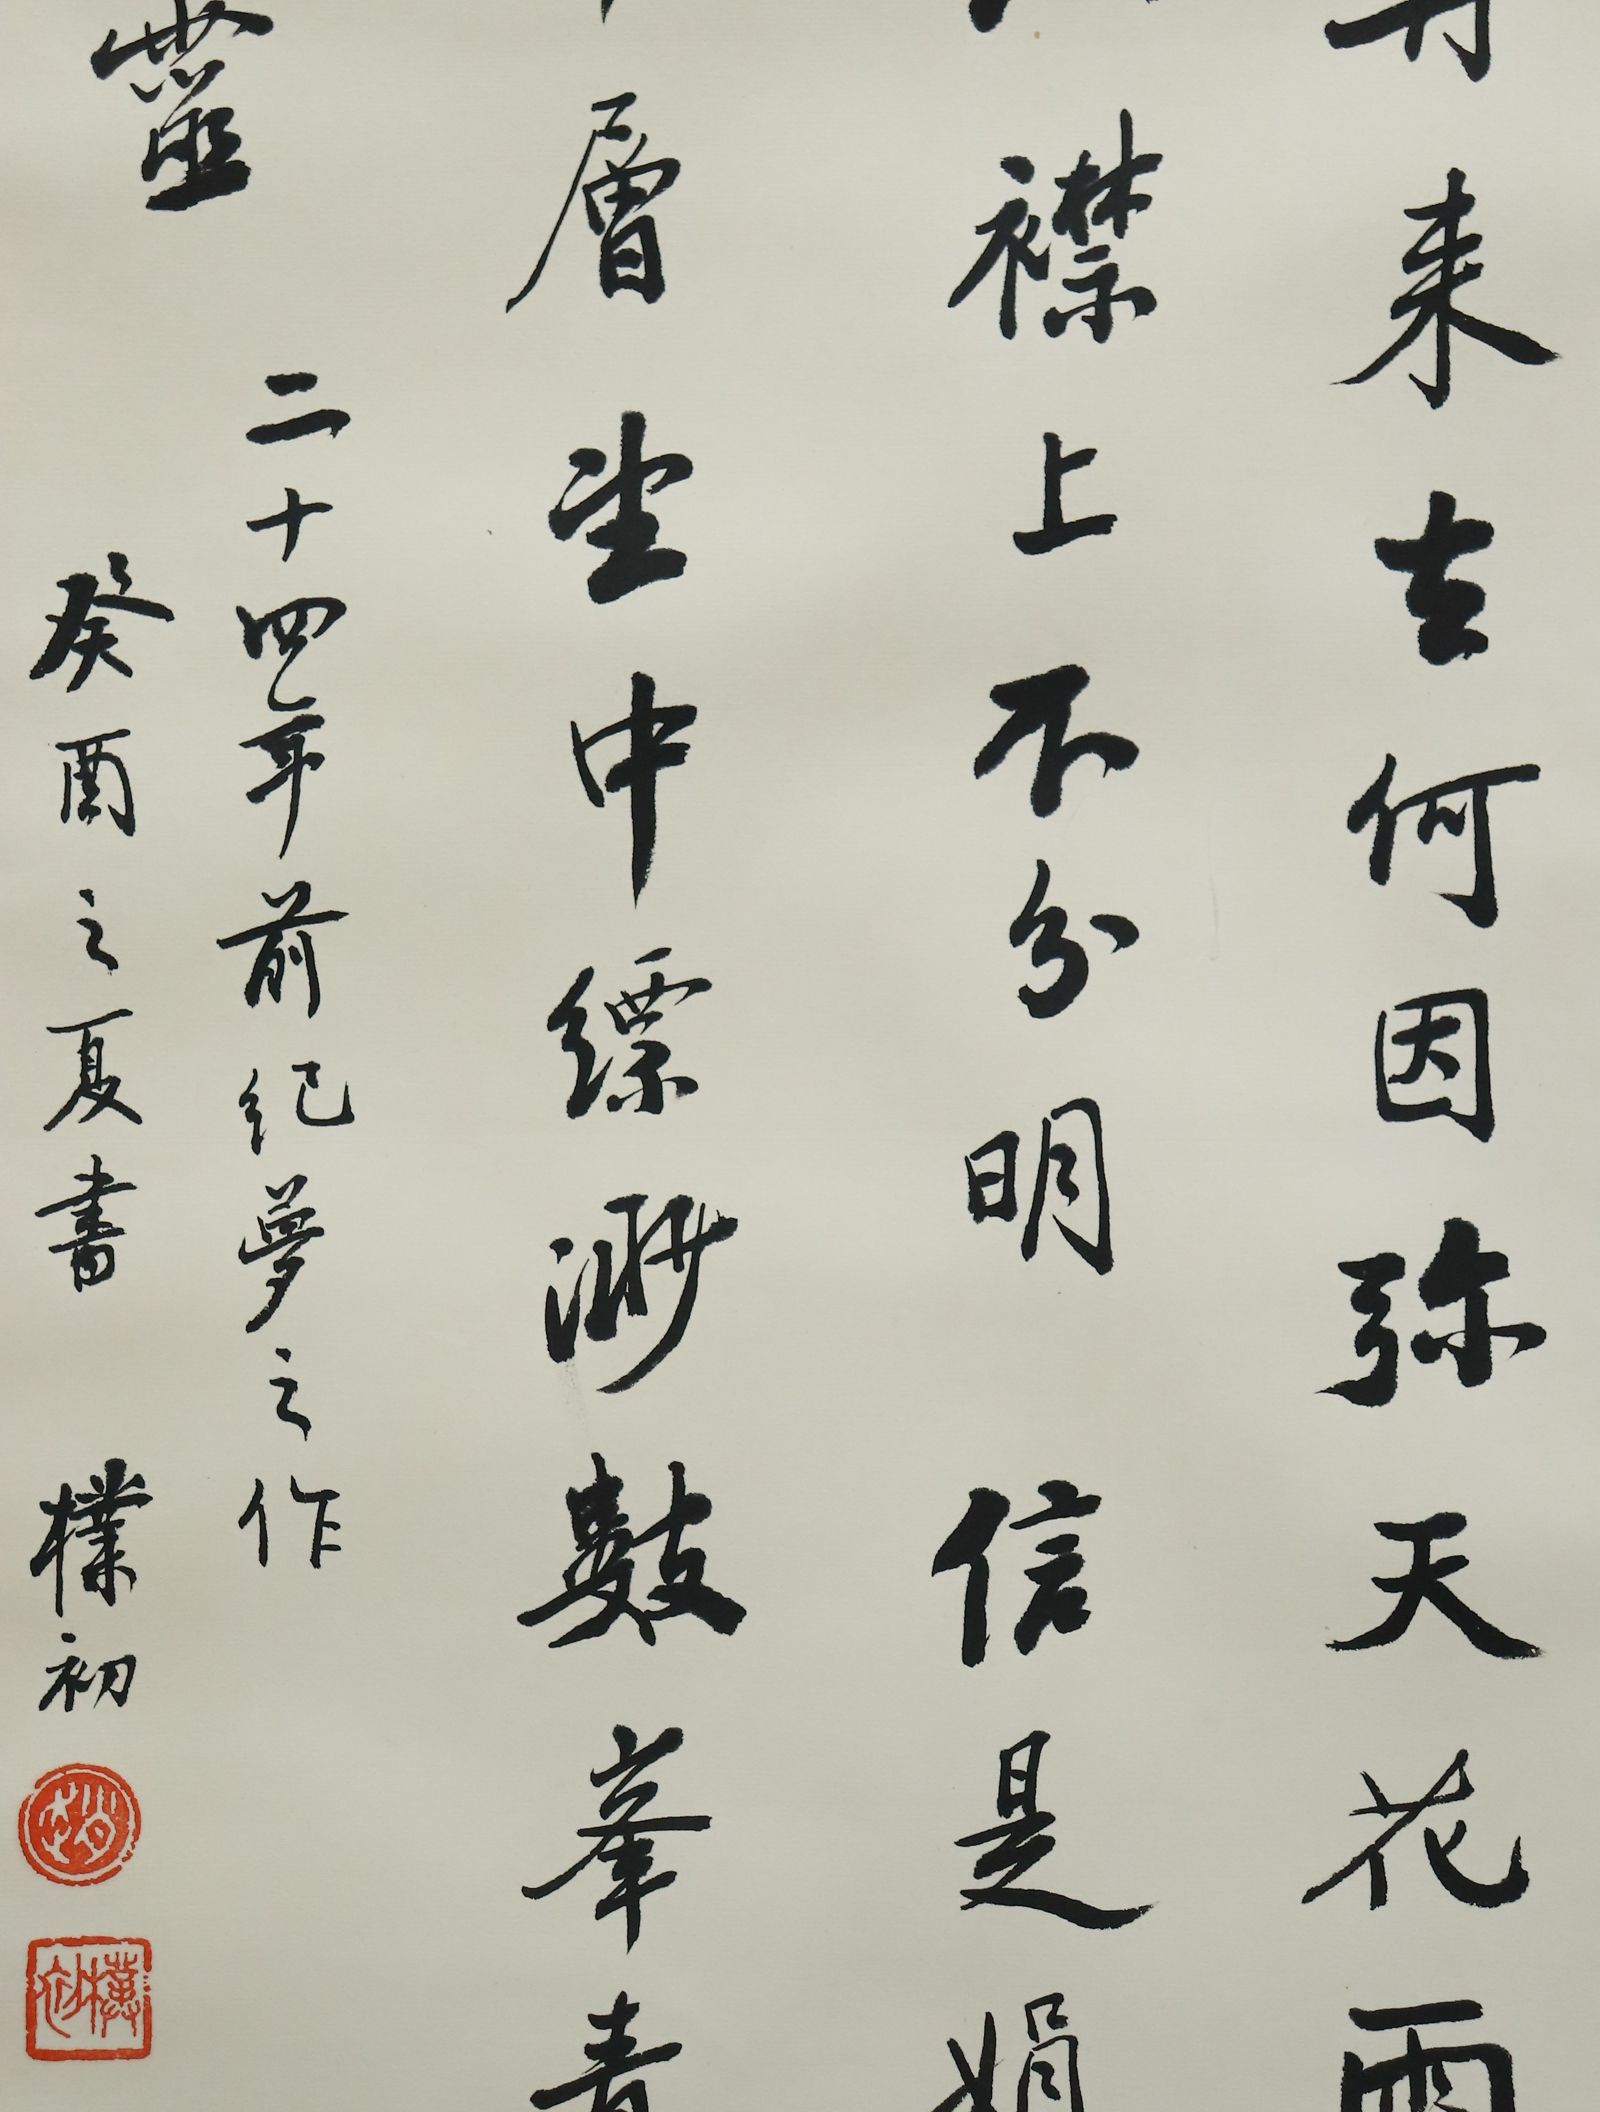 来去何因弥天花雨
襟上不分明 信是娟
層坐中缥渺數峯青
靈
二十四年前纪夢之作
癸酉之夏書 樸初
趙
樸初